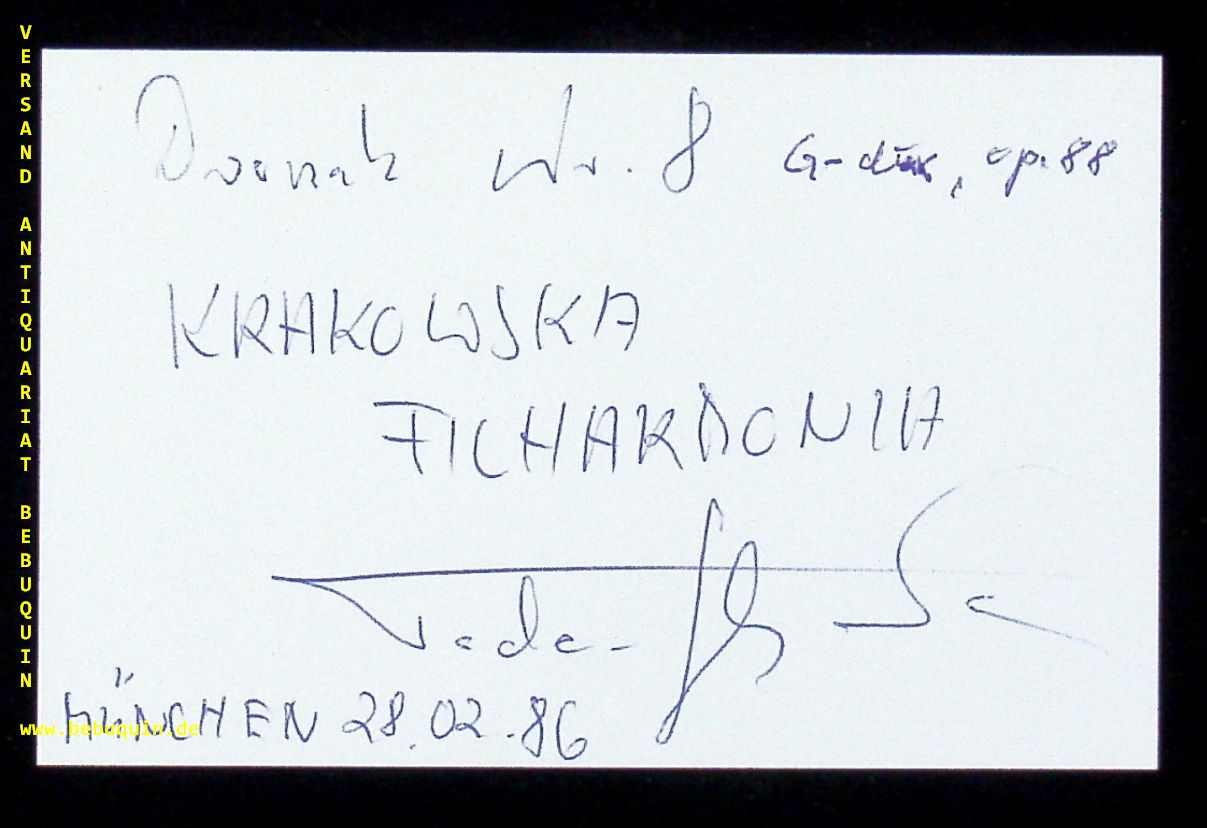 VERSAND ANTIQUARIAT BEBUQUIN
Dvorak Nr. 8 G-dur, op. 88
KRAKOWSKA
FILHARMONIA
MÜNCHEN 28.02.86
www.bebuquin.de